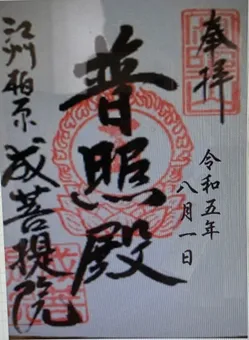 奉拝
令和五年
八月一日
普照殿
江州柏原成菩提院